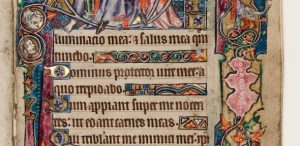 luminacio mea: & salus mea quē
timebo.
Dominus protector uite mee: a
quo trepidabo
Dum appiant super me nocen
tes: ut edant carnes meas.
Qui tribulant me inimici mei ip